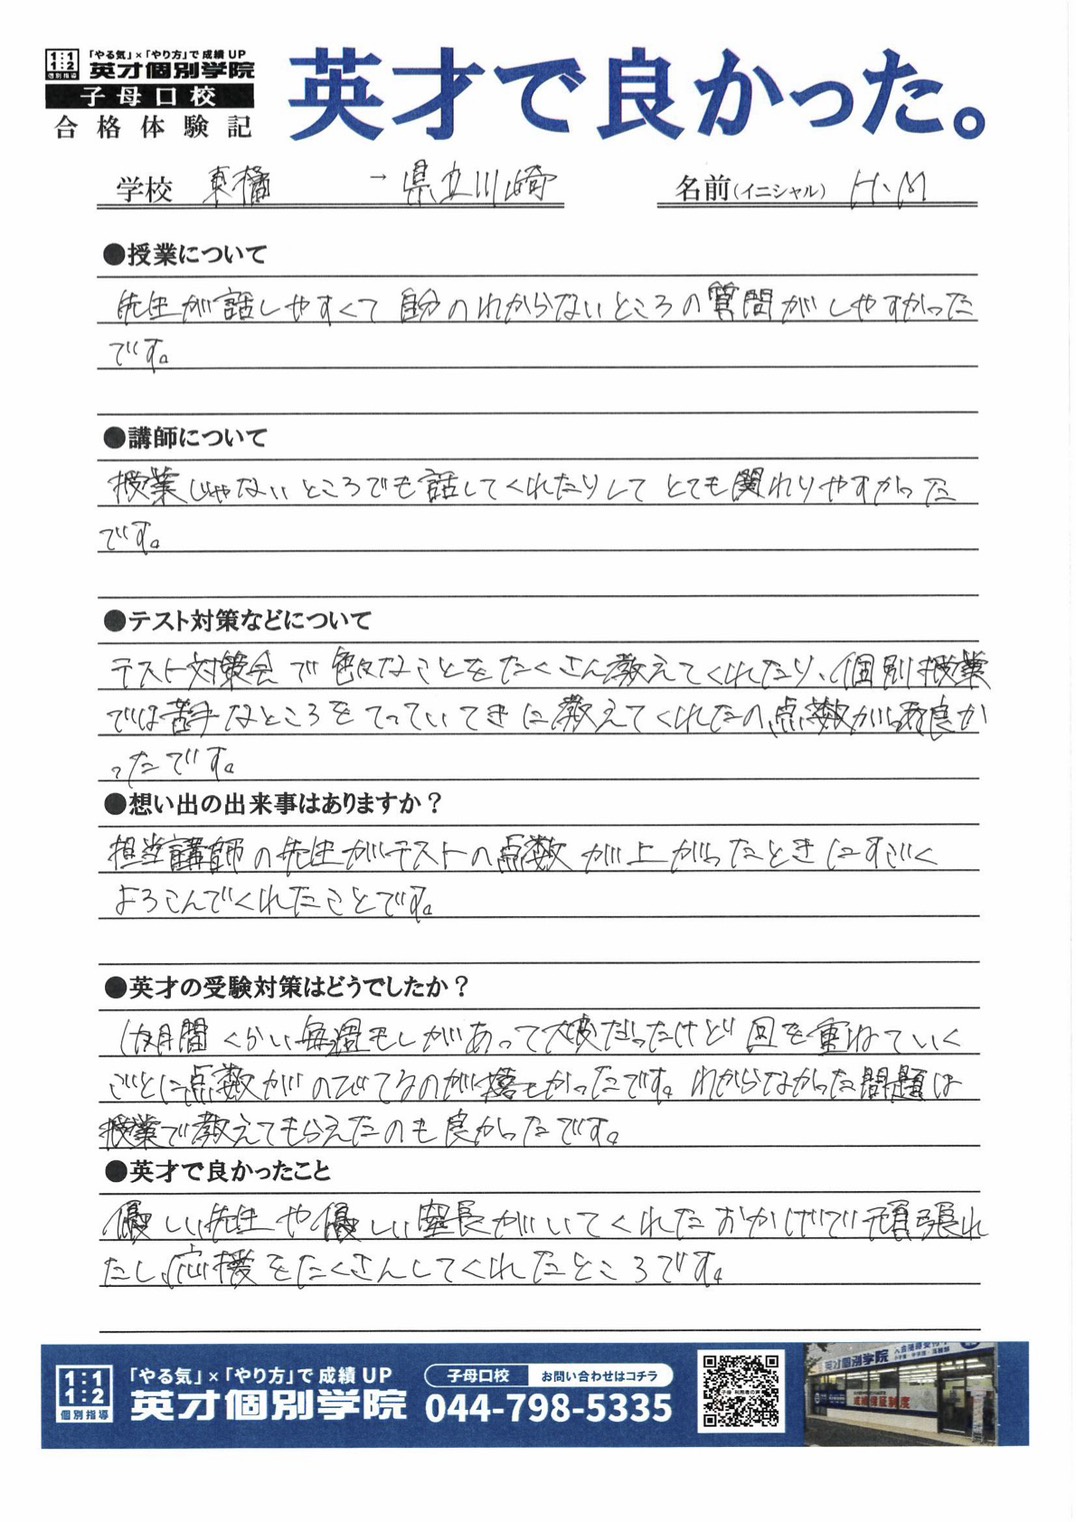 1:1
1:2
個別指導
「やる気」×「やり方」で成績UP
英才個別学院
子母口校
合格体験記
英才で良かった。
学校 東橘 → 県立川崎
名前(イニシャル) H.M
●授業について
先生が話しやすくて自分のわからないところの質問がしやすかった
です。
●講師について
授業じゃないところでも話してくれたりしてとても関わりやすかった
です。
●テスト対策などについて
テスト対策会で色々なことをたくさん教えてくれたり、個別授業
では苦手なところをてっていてきに教えてくれたの、点数が
良か
ったです。
●想い出の出来事はありますか？
担当講師の先生がテストの点数が上がったときにすごく
よろこんでくれたことです。
●英才の受験対策はどうでしたか？
月間くらい毎週もしがあって大変だったけど回を重ねていく
ごとに点数がのびてるのが かったです。わからなかった問題は
授業で教えてもらえたのも良かったです。
●英才で良かったこと
優しい先生や優しい室長がいてくれたおかげで頑張れ
たし、応援をたくさんしてくれたところです。
1:1
1:2
個別指導
「やる気」×「やり方」で成績UP
英才個別学院
子母口校 お問い合わせはコチラ
044-798-5335
英才個別学院
成績保証制度